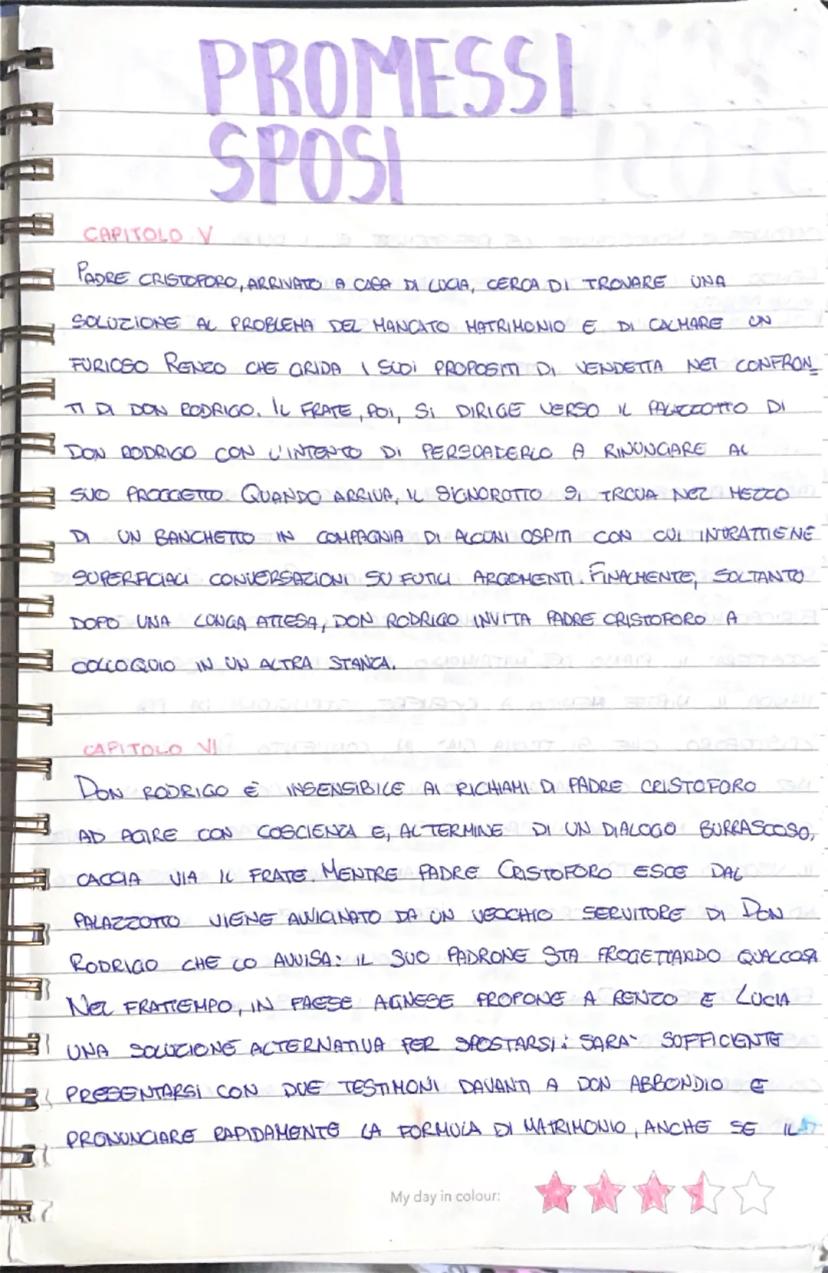 PROMESSI
SPOSI
CAPITOLO V
PADRE CRISTOFORO, ARRIVATO A CASA DI LUCIA, CERCA DI TROVARE UNA
SOLUZIONE AL PROBLEMA DEL MANCATO MATRIMONIO E DI CALMARE UN
FURIOSO RENZO CHE GRIDA I SUOI PROPOSITI DI VENDETTA NEI CONFRON_
TI DI DON RODRIGO. IL FRATE, POI, SI DIRIGE VERSO IL PALAZZOTTO DI
DON RODRIGO CON L'INTENTO DI PERSUADERLO A RINUNCIARE AL
SUO PROGGETTO. QUANDO ARRIVA, IL SIGNOROTTO SI TROVA NEL MEZZO
DI UN BANCHETTO IN COMPAGNIA DI ALCUNI OSPITI CON CUI INTRATTIENE
SUPERFICIALI CONVERSAZIONI SU FUTILI ARGOMENTI. FINALMENTE, SOLTANTO
DOPO UNA LUNGA ATTESA, DON RODRIGO INVITA PADRE CRISTOFORO A
COLLOQUIO IN UN ALTRA STANZA.
CAPITOLO VI
DON RODRIGO È INSENSIBILE AI RICHIAMI DI PADRE CRISTOFORO
AD AGIRE CON COSCIENZA E, AL TERMINE DI UN DIALOGO BURRASCOSO,
CACCIA VIA IL FRATE. MENTRE PADRE CRISTOFORO ESCE DAL
PALAZZOTTO VIENE AVVICINATO DA UN VECCHIO SERVITORE DI DON
RODRIGO CHE LO AVVISA: IL SUO PADRONE STA PROGETTANDO QUALCOSA
NEL FRATTEMPO, IN PAESE AGNESE PROPONE A RENZO E LUCIA
UNA SOLUZIONE ALTERNATIVA PER SPOSTARSI: SARA' SUFFICIENTE
PRESENTARSI CON DUE TESTIMONI DAVANTI A DON ABBONDIO E
PRONUNCIARE RAPIDAMENTE LA FORMULA DI MATRIMONIO, ANCHE SE IL
My day in colour: